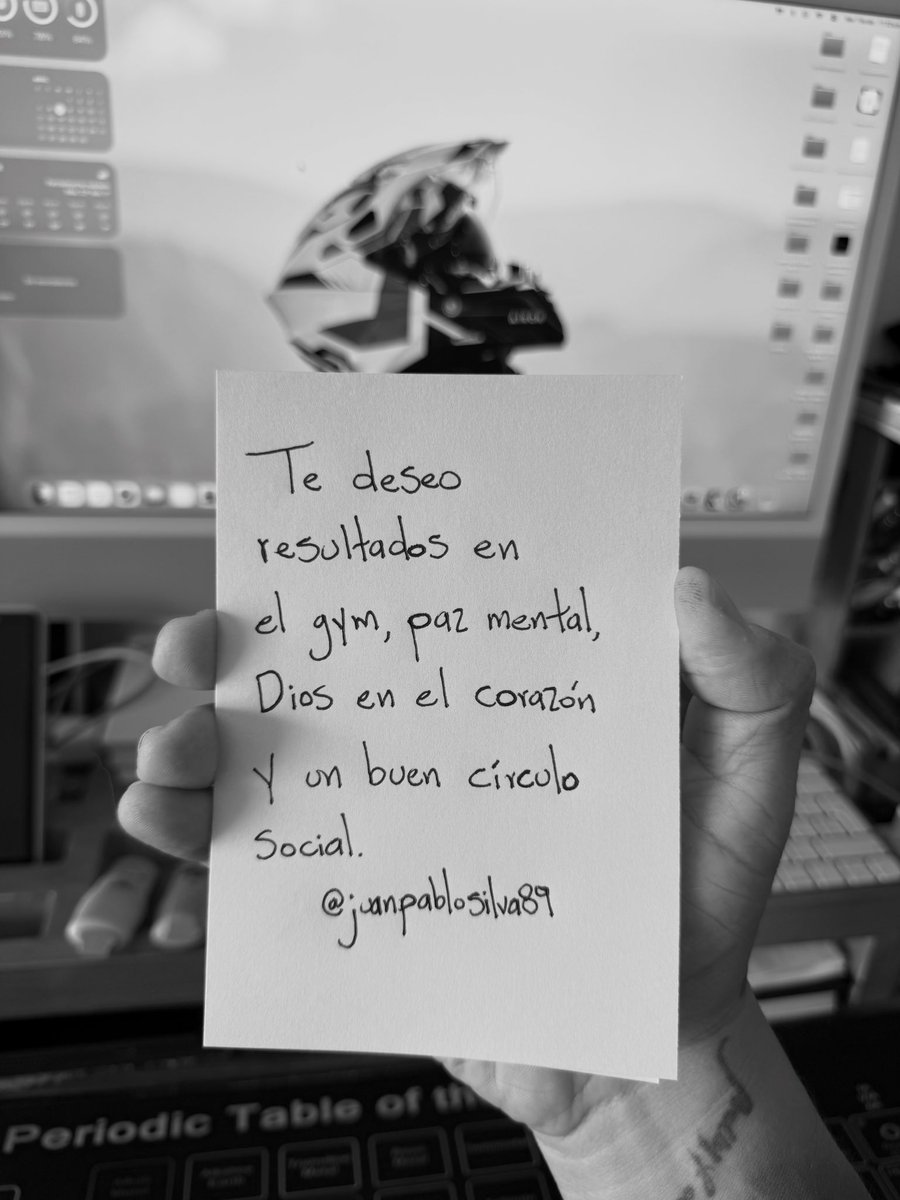 Te deseo
resultados en
el gym, paz mental,
Dios en el corazón
y un buen círculo
social.
@juanpablosilva89
Periodic Table of